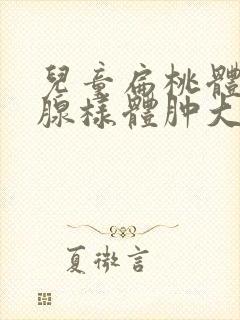 兒童扁桃體
腺樣體肿大
夏微言